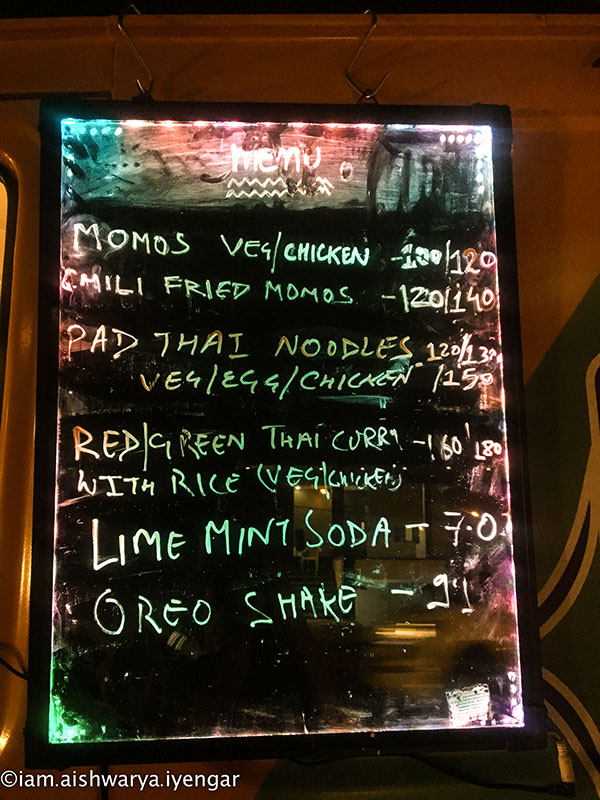 MENU
MOMOS VEG/CHICKEN -100/120
CHILI FRIED MOMOS -120/140
PAD THAI NOODLES 120/130
VEG/EGG/CHICKEN /150
RED/GREEN THAI CURRY -160/180
WITH RICE (VEG/CHICKEN)
LIME MINT SODA - 70
OREO SHAKE -
©iam.aishwarya.iyengar